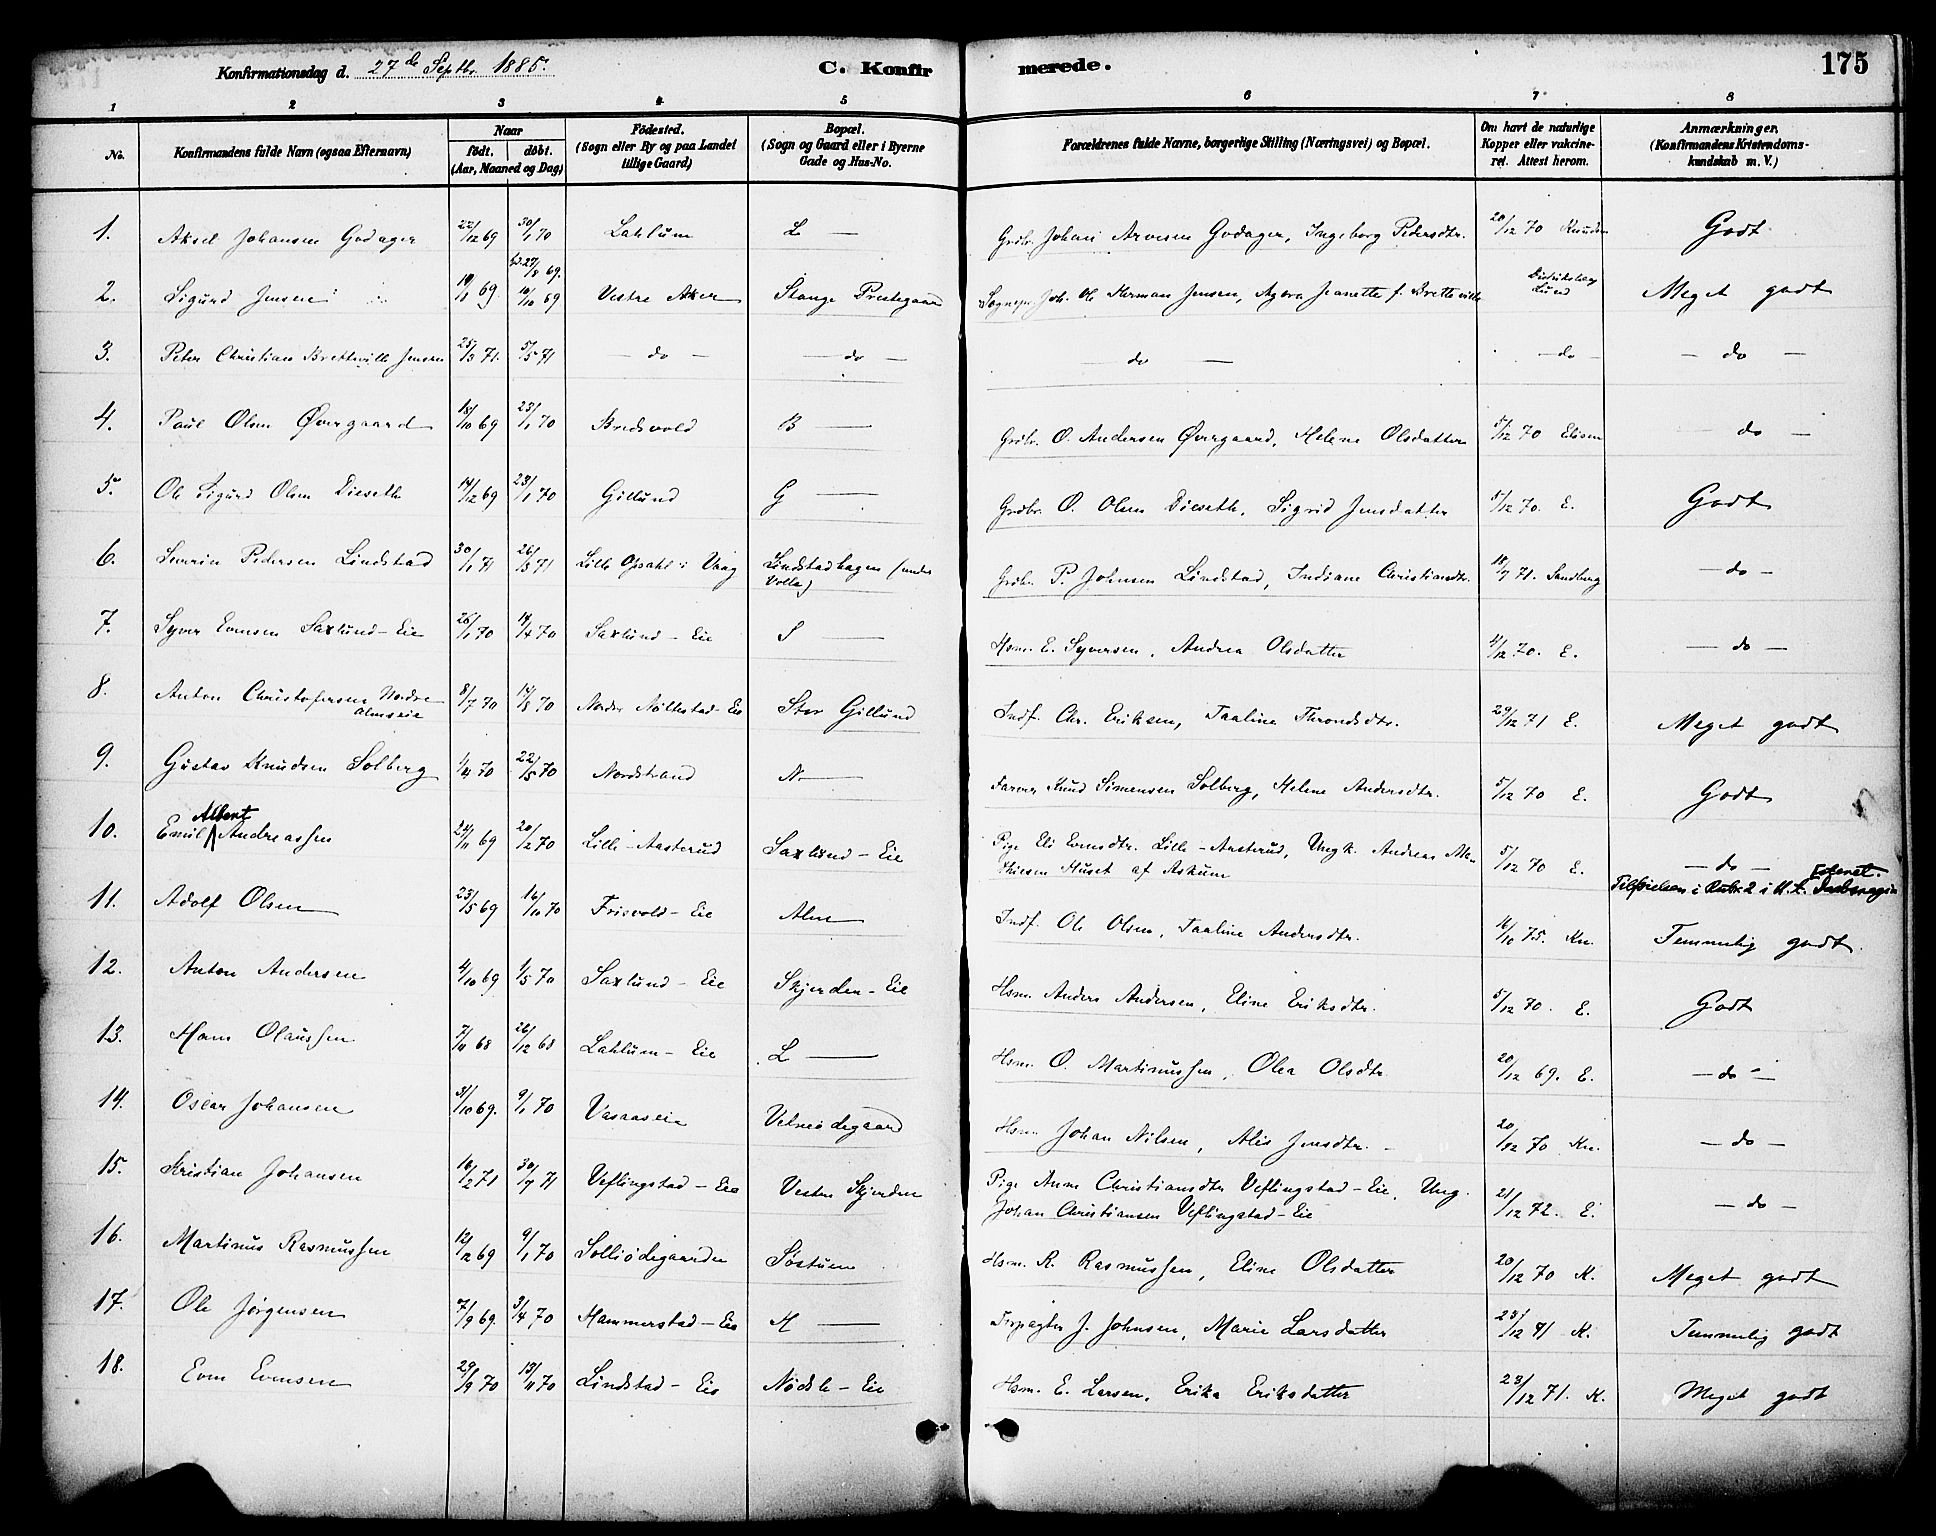 Konfirmationsdag d. 27de Septbr. 1885. C. Konfirmerede. 175
1 2 3 4 5 6 7 8
No. Konfirmandens fulde Navn (ogsaa Efternavn) Naar født. døbt. (Aar, Maaned og Dag) Fødested. (Sogn eller By og paa Landet tillige Gaard) Bopæl. (Sogn og Gaard eller i Byerne Gade og Hus-No. Forældrenes fulde Navne, borgerlige Stilling (Næringsvei) og Bopæl. Om havt de naturlige Kopper eller vakcineret. Attest herom. Anmærkninger. (Konfirmandens Kristendomskundskab m. V.)
1. Aksel Johansen Godager 22/12 69 30/1 70 Lahlum L — Grdbr. Johan Arvesen Godager, Ingeborg Pedersdtr. 20/12 70 Knudsen Godt
2. Sigurd Jensen 19/8 69 hd. 27/8 69. 10/10 69 Vestre Aker Stange Prestegaard Sognepr. Joh. Ol. Herman Jensen, Agora Jeanette f. Bretteville Distriktslæg Lund Meget godt
3. Peter Christian Bretteville Jensen 25/3 71. 5/5 71 — do — — do — do — — do — — do —
4. Paul Olsen Øvergaard 18/10 69 23/1 70 Bredsvold B — Grdbr. O. Andersen Øvergaard, Helene Olsdatter 5/12 70 Elisen — do —
5. Ole Sigurd Olsen Dieseth 14/12 69 23/1 70 Gillund G — Grdbr. O. Olsen Dieseth, Sigrid Jensdatter 5/12 70. E. Godt
6. Severin Pedersen Lindstad 30/1 71 26/3 71 Lille Opsahl i Vaag Lindstadhagen (under Volla) Grdbr. P. Johnsen Lindstad, Indiane Christiansdtr. 18/7 71. Sandberg — do —
7. Syver Evensen Saxlund-Eie 26/1 70 18/4 70 Saxlund-Eie S — Hsm. E. Syversen, Andrea Olsdatter 4/12 70. E. — do —
8. Anton Christofersen Nordre Almseie 8/7 70 14/8 70 Nordre Nøttestad-Eie Stor Gillund Indf. Chr. Eriksen, Taaline Throndsdtr. 29/12 71 E. Meget godt
9. Gustav Knudsen Solberg 1/4 70 22/5 70 Nordstrand N — Farver Knud Simensen Solberg, Helene Andersdtr. 5/12 70 E. Godt
10. Emil Albert Andreassen 24/11 69 20/2 70 Lille-Aasterud Saxlund-Eie Pige Eli Evensdtr. Lille-Aasterud, Ungk. Andreas Mathiesen Huset af Askum 5/12 70 E. — do —
Tilføielsen i Rubr. 2 i M. f.
11. Adolf Olsen 23/5 69 16/10 70 Frisvold-Eie Alm Indf. Ole Olsen, Taaline Andersdtr. 16/10 75. Kn. Temmelig godt
12. Anton Andersen 4/10 69 1/5 70 Saxlund-Eie Skjerden-Eie Hsm. Anders Andersen, Eline Eriksdtr. 5/12 70. E. Godt
13. Hans Olaussen 7/11 68 26/12 68 Lahlum-Eie L — Hsm. O. Martinussen, Olea Olsdtr. 20/12 69. E. — do —
14. Oscar Johansen 31/10 69. 9/1 70 Vasaaseie Velneødegaard Hsm. Johan Nilsen, Alis Jensdtr. — 20/12 70 Kn. — do —
15. Kristian Johansen 18/2 71 30/7 71 Veflingstad-Eie Vestre Skjerden Pige Anne Christiansdtr Veflingstad-Eie, Ung. Johan Christiansen Veflingstad-Eie 21/12 72. E. — do —
16. Martinus Rasmussen 12/12 69 9/1 70 Solliødegaarden Søstuen Hsm. R. Rasmussen, Eline Olsdatter 20/12 70 K. Meget godt
17. Ole Jørgensen 7/9 69. 3/4 70 Hammerstad-Eie H — Forpagter J. Johnsen, Marie Larsdatter 23/12 71 K. Temmelig godt
18. Even Evensen 29/9 70 13/11 70 Lindstad-Eie Nødsle-Eie Hsm. E. Larsen, Erika Eriksdatter 23/12 71. K. Meget godt